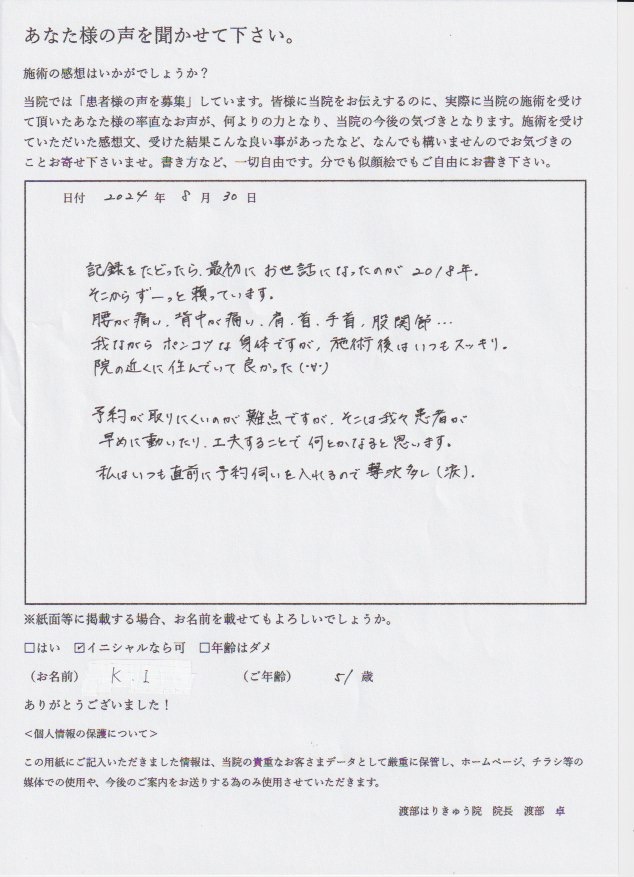 あなた様の声を聞かせて下さい。
施術の感想はいかがでしょうか？
当院では「患者様の声を募集」しています。皆様に当院をお伝えするのに、実際に当院の施術を受け
て頂いたあなた様の率直なお声が、何よりの力となり、当院の今後の気づきとなります。施術を受け
ていただいた感想文、受けた結果こんな良い事があったなど、なんでも構いませんのでお気づきの
ことお寄せ下さいませ。書き方など、一切自由です。分でも似顔絵でもご自由にお書き下さい。
日付 2024 年 8 月 30 日
記録をたどったら、最初にお世話になったのが2018年。
そこからずーっと頼っています。
腰が痛い、背中が痛い、肩、首、手首、股関節…
我ながらポンコツな身体ですが、施術後はいつもスッキリ。
院の近くに住んでいて良かった(･∀･)
予約が取りにくいのが難点ですが、そこは我々患者が
早めに動いたり、工夫することで何とかなると思います。
私はいつも直前に予約伺いを入れるので撃沈多し(涙)。
※紙面等に掲載する場合、お名前を載せてもよろしいでしょうか。
□はい ☑イニシャルなら可 □年齢はダメ
（お名前） K.I （ご年齢） 51 歳
ありがとうございました！
＜個人情報の保護について＞
この用紙にご記入いただきました情報は、当院の貴重なお客さまデータとして厳重に保管し、ホームページ、チラシ等の
媒体での使用や、今後のご案内をお送りする為のみ使用させていただきます。
渡部はりきゅう院 院長 渡部 卓